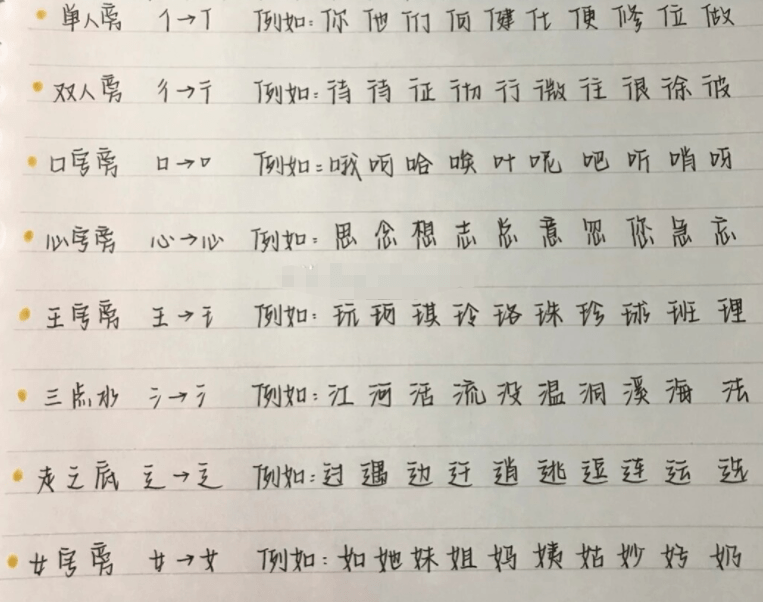 单人旁 亻→亻 例如：你 他 们 何 健 仕 便 修 位 做
双人旁 彳→彳 例如：待 待 征 彻 行 微 往 很 徐 彼
口字旁 口→口 例如：哦 啊 哈 唉 叶 呢 吧 听 哨 呀
心字旁 心→心 例如：思 念 想 志 总 意 忽 您 急 忘
王字旁 王→王 例如：玩 珂 琪 玲 珞 珠 珍 球 班 理
三点水 氵→氵 例如：江 河 活 流 没 温 洞 溪 海 法
走之底 辶→辶 例如：过 遇 边 迁 逍 逃 逗 连 运 选
女字旁 女→女 例如：如 她 妹 姐 妈 姨 姑 妙 奶